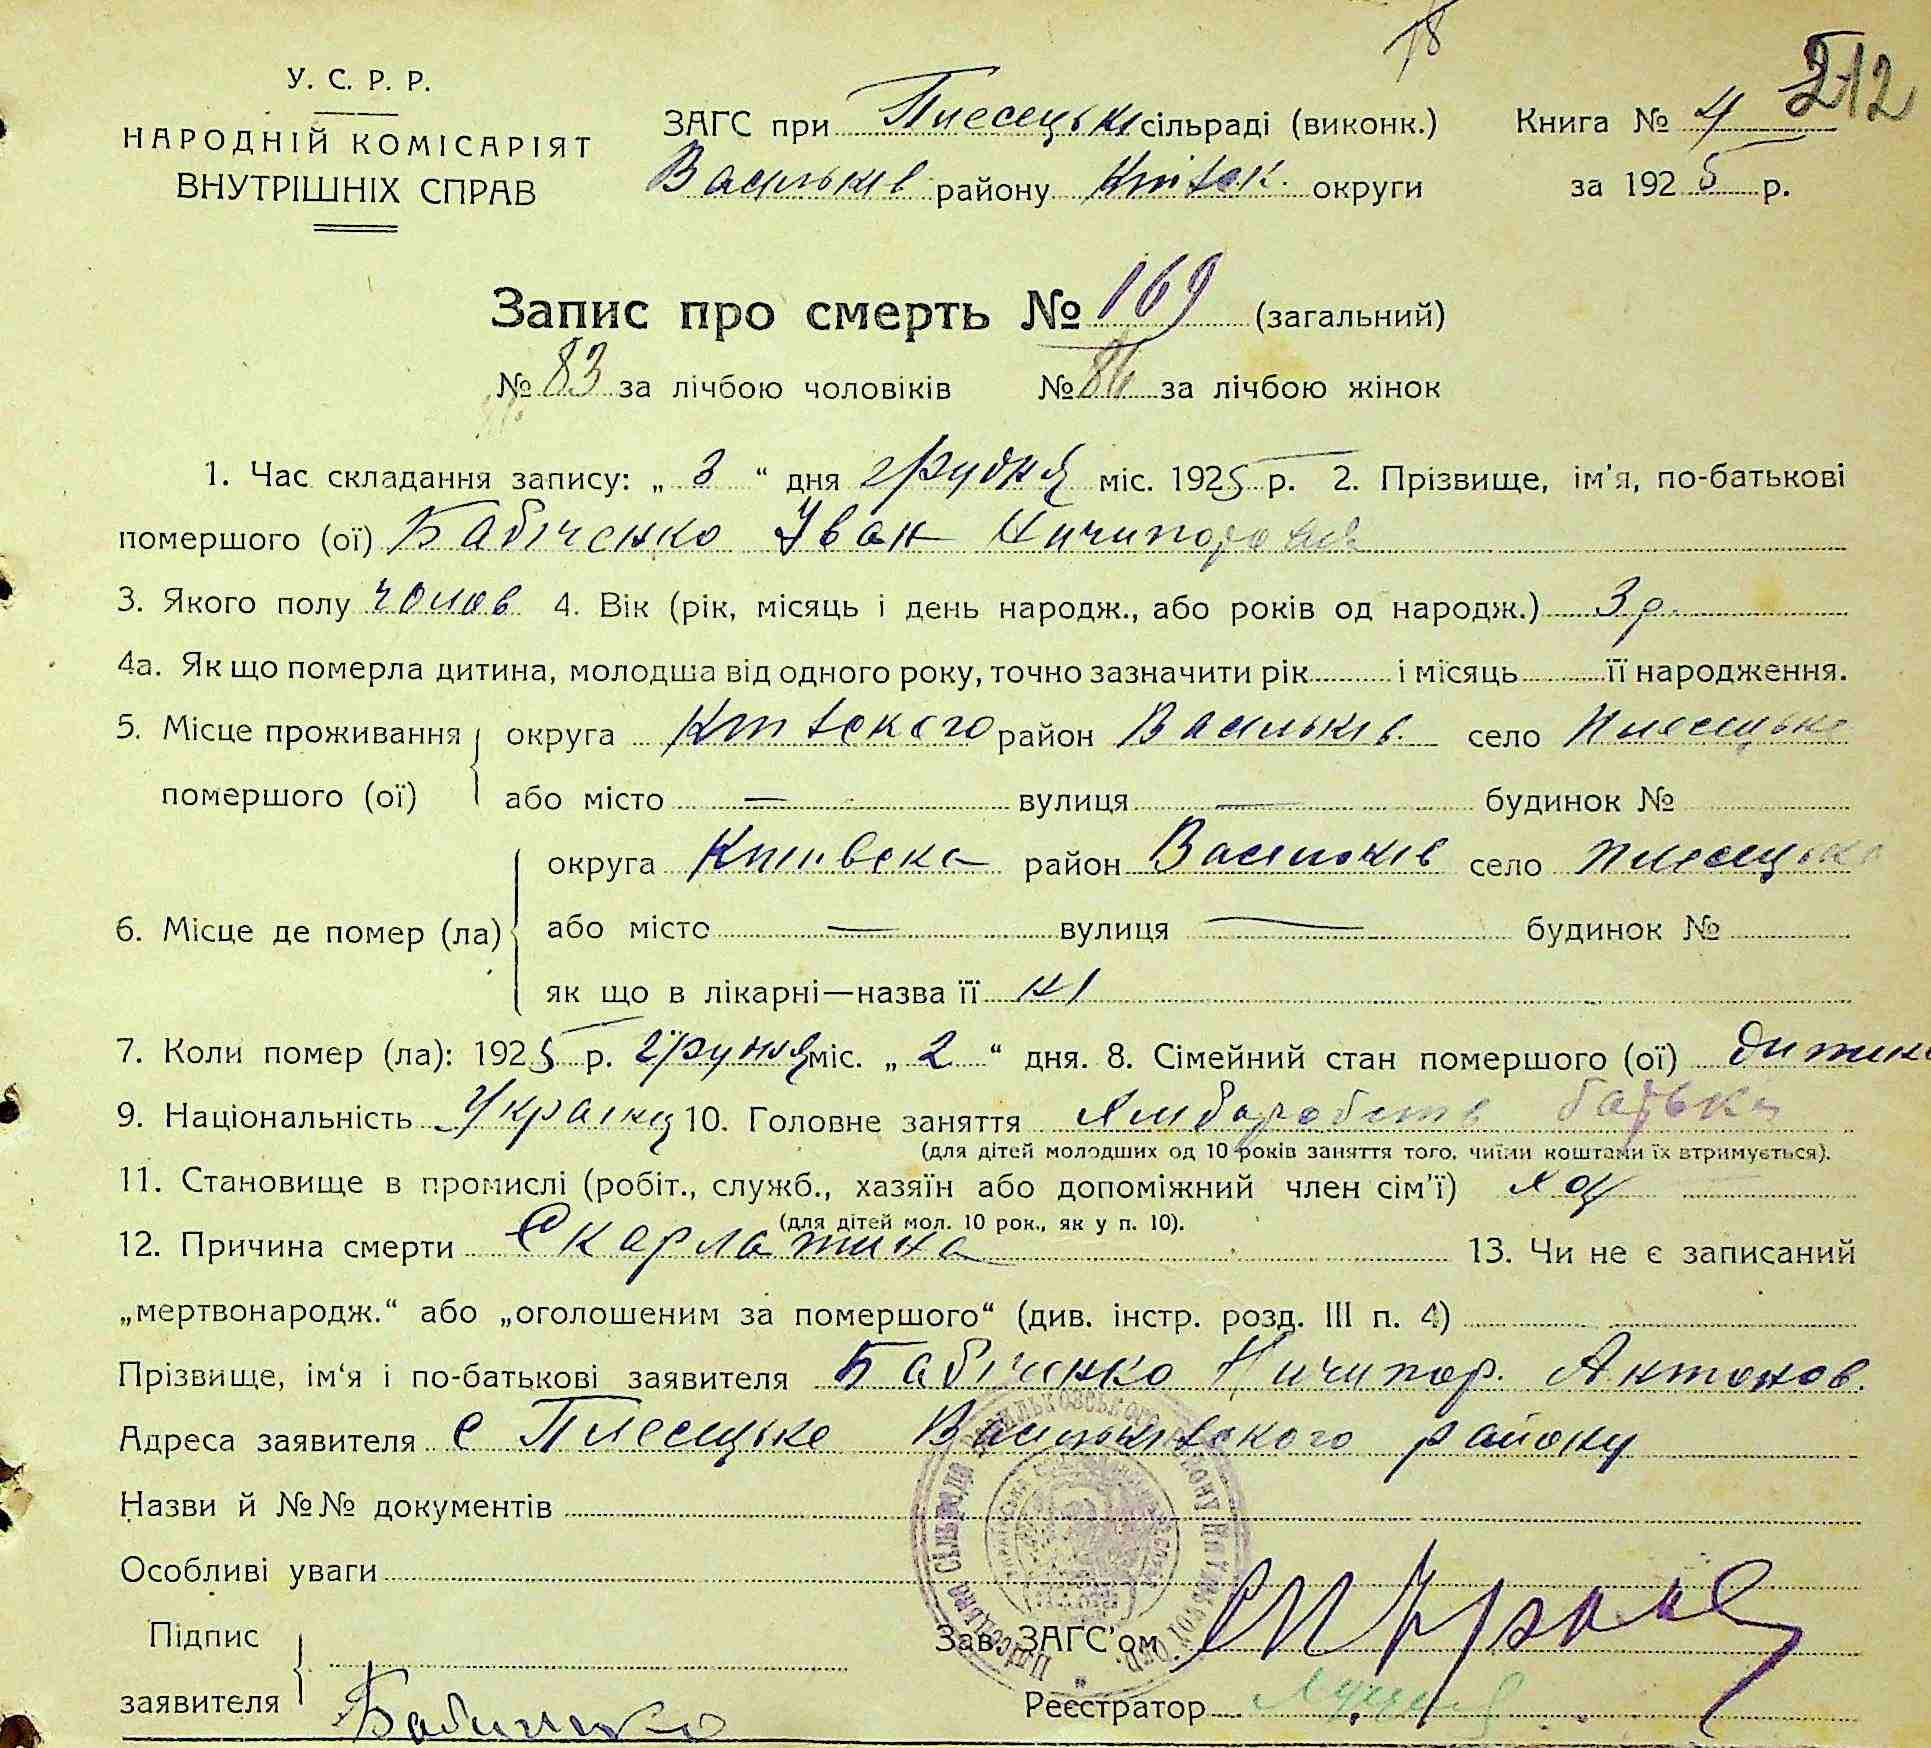 18
212
У. С. Р. Р.
НАРОДНІЙ КОМІСАРІЯТ
ВНУТРІШНІХ СПРАВ
ЗАГС при Плесецькі сільраді (виконк.)
Васильків району Київськ. округи
Книга № 4
за 1925 р.
Запис про смерть № 169 (загальний)
№ 83 за лічбою чоловіків № 86 за лічбою жінок
1. Час складання запису: „ 3 “ дня грудня міс. 1925 р. 2. Прізвище, ім'я, по-батькові
помершого (ої) Бабіченко Іван Ничипорович
3. Якого полу чолов 4. Вік (рік, місяць і день народж., або років од народж.) 3 р.
4а. Як що померла дитина, молодша від одного року, точно зазначити рік і місяць її народження.
5. Місце проживання округа Київського район Васильків. село Плесецьке
помершого (ої) або місто — вулиця — будинок №
округа Київська район Васильків село Плесецьке
6. Місце де помер (ла) або місто — вулиця — будинок №
як що в лікарні—назва її ні
7. Коли помер (ла): 1925 р. грудня міс. „ 2 “ дня. 8. Сімейний стан помершого (ої) дитина
9. Національність Українц 10. Головне заняття Хліборобств батька
(для дітей молодших од 10 років заняття того, чиїми коштами їх втримується).
11. Становище в промислі (робіт., служб., хазяїн або допоміжний член сім'ї) хоз
(для дітей мол. 10 рок., як у п. 10).
12. Причина смерти Скарлатина 13. Чи не є записаний
„мертвонародж.“ або „оголошеним за помершого“ (див. інстр. розд. III п. 4)
Прізвище, ім'я і по-батькові заявителя Бабіченко Ничипор. Антонов.
Адреса заявителя с Плесецьке Васильківського району
Назви й №№ документів
Особливі уваги
Підпис
заявителя Бабиченко
Зав. ЗАГС'ом
Реєстратор